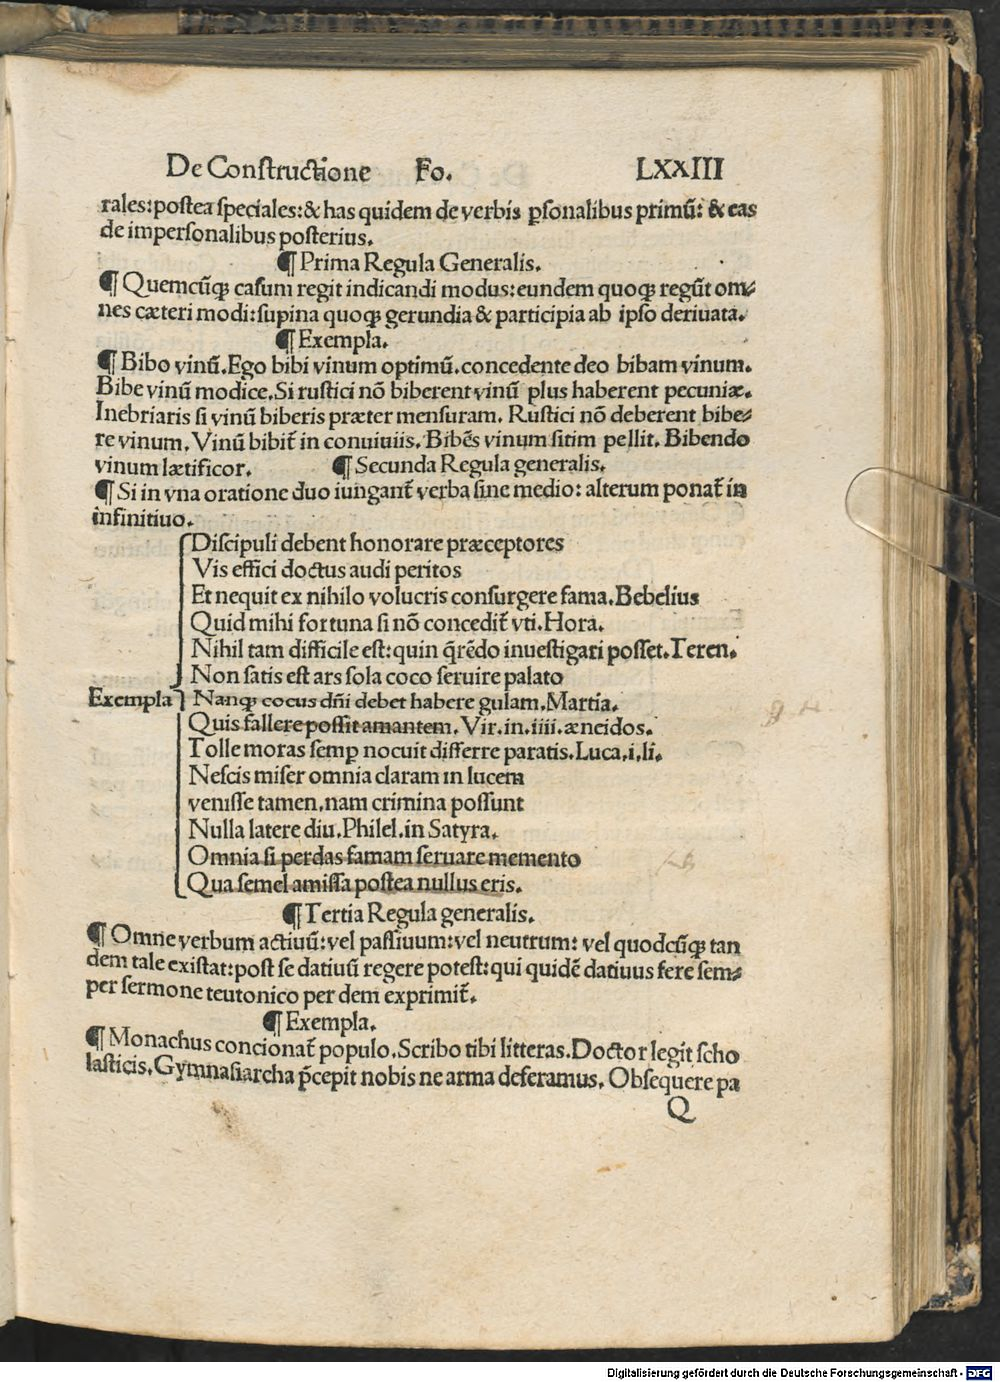 De Constructione Fo. LXXIII
rales: postea speciales: & has quidem de verbis ꝑsonalibus primū: & eas
de impersonalibus posterius.
¶ Prima Regula Generalis.
¶ Quemcūqꝫ casum regit indicandi modus: eundem quoqꝫ regūt om⸗
nes cæteri modi: supina quoqꝫ gerundia & participia ab ipso deriuata.
¶ Exempla.
¶ Bibo vinū. Ego bibi vinum optimū. concedente deo bibam vinum.
Bibe vinū modice. Si rustici nō biberent vinū plus haberent pecuniæ.
Inebriaris si vinū biberis præter mensuram. Rustici nō deberent bibe⸗
re vinum. Vinū bibit̄ in conuiuiis. Bibēs vinum sitim pellit. Bibendo
vinum lætificor. ¶ Secunda Regula generalis.
¶ Si in vna oratione duo iungant̄ verba sine medio: alterum ponat̄ in
infinitiuo.
Discipuli debent honorare præceptores
Vis effici doctus audi peritos
Et nequit ex nihilo volucris consurgere fama. Bebelius
Quid mihi fortuna si nō concedit̄ vti. Hora.
Nihil tam difficile est: quin q̄rēdo inuestigari posset. Teren.
Non satis est ars sola coco seruire palato
Exempla Nanqꝫ cocus dn̄i debet habere gulam. Martia.
Quis fallere possit amantem. Vir. in. iiii. æneidos.
Tolle moras semꝑ nocuit differre paratis. Luca. i. li.
Nescis miser omnia claram in lucem
venisse tamen. nam crimina possunt
Nulla latere diu. Philel. in Satyra.
Omnia si perdas famam seruare memento
Qua semel amissa postea nullus eris.
¶ Tertia Regula generalis.
¶ Omne verbum actiuū: vel passiuum: vel neutrum: vel quodcūqꝫ tan
dem tale existat: post se datiuū regere potest: qui quidē datiuus fere sem⸗
per sermone teutonico per dem exprimit̄.
¶ Exempla.
¶ Monachus concionat̄ populo. Scribo tibi litteras. Doctor legit scho
lasticis. Gymnasiarcha p̄cepit nobis ne arma deferamus. Obsequere pa
Q
Digitalisierung gefördert durch die Deutsche Forschungsgemeinschaft - DFG